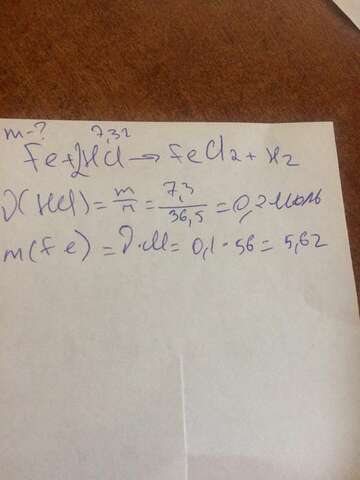 m-? 7,3г
Fe+2HCl → FeCl2 + H2
ν(HCl) = m/M = 7,3/36,5 = 0,2 моль
m(Fe) = ν·M = 0,1 · 56 = 5,6г